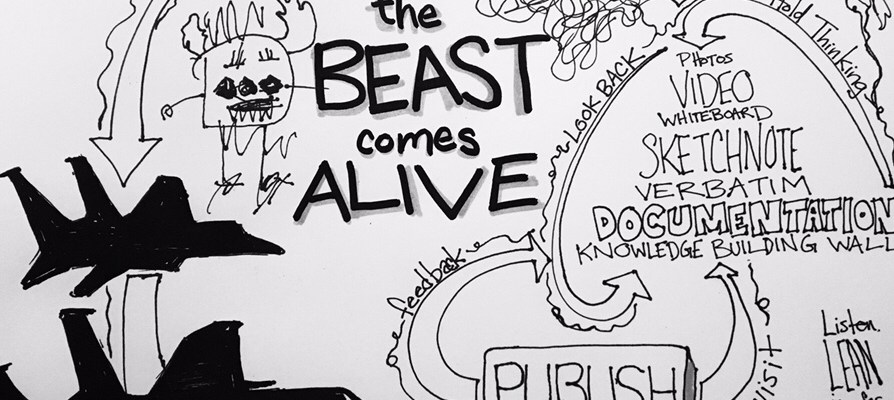 the
BEAST
comes
ALIVE
LOOK BACK
Hold Thinking
PHOTOS
VIDEO
WHITEBOARD
SKETCHNOTE
VERBATIM
DOCUMENTATION
KNOWLEDGE BUILDING WALL
feedback
PUBLISH
Listen.
LEAN